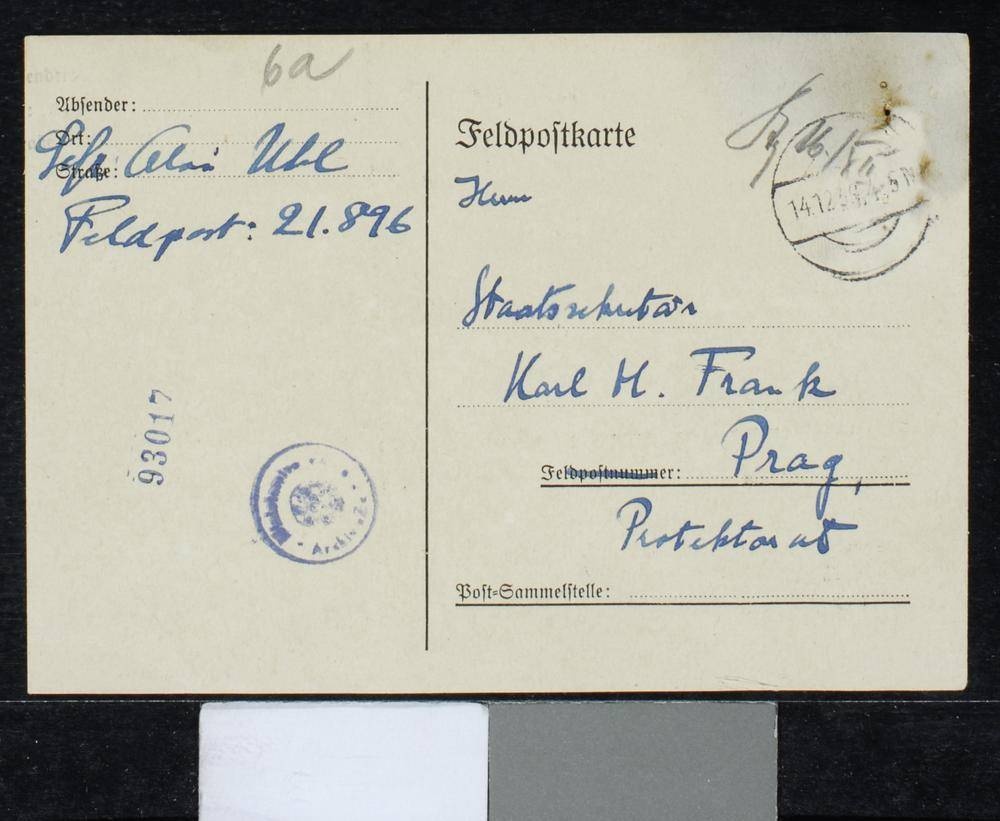 6a
Absender:
Ort:
Straße:
Uhl
Feldpost: 21.896
93017
Archiv
Feldpostkarte
14.12
Herrn
Staatssekretär
Karl H. Frank
Feldpostnummer: Prag,
Protektorat
Post-Sammelstelle: